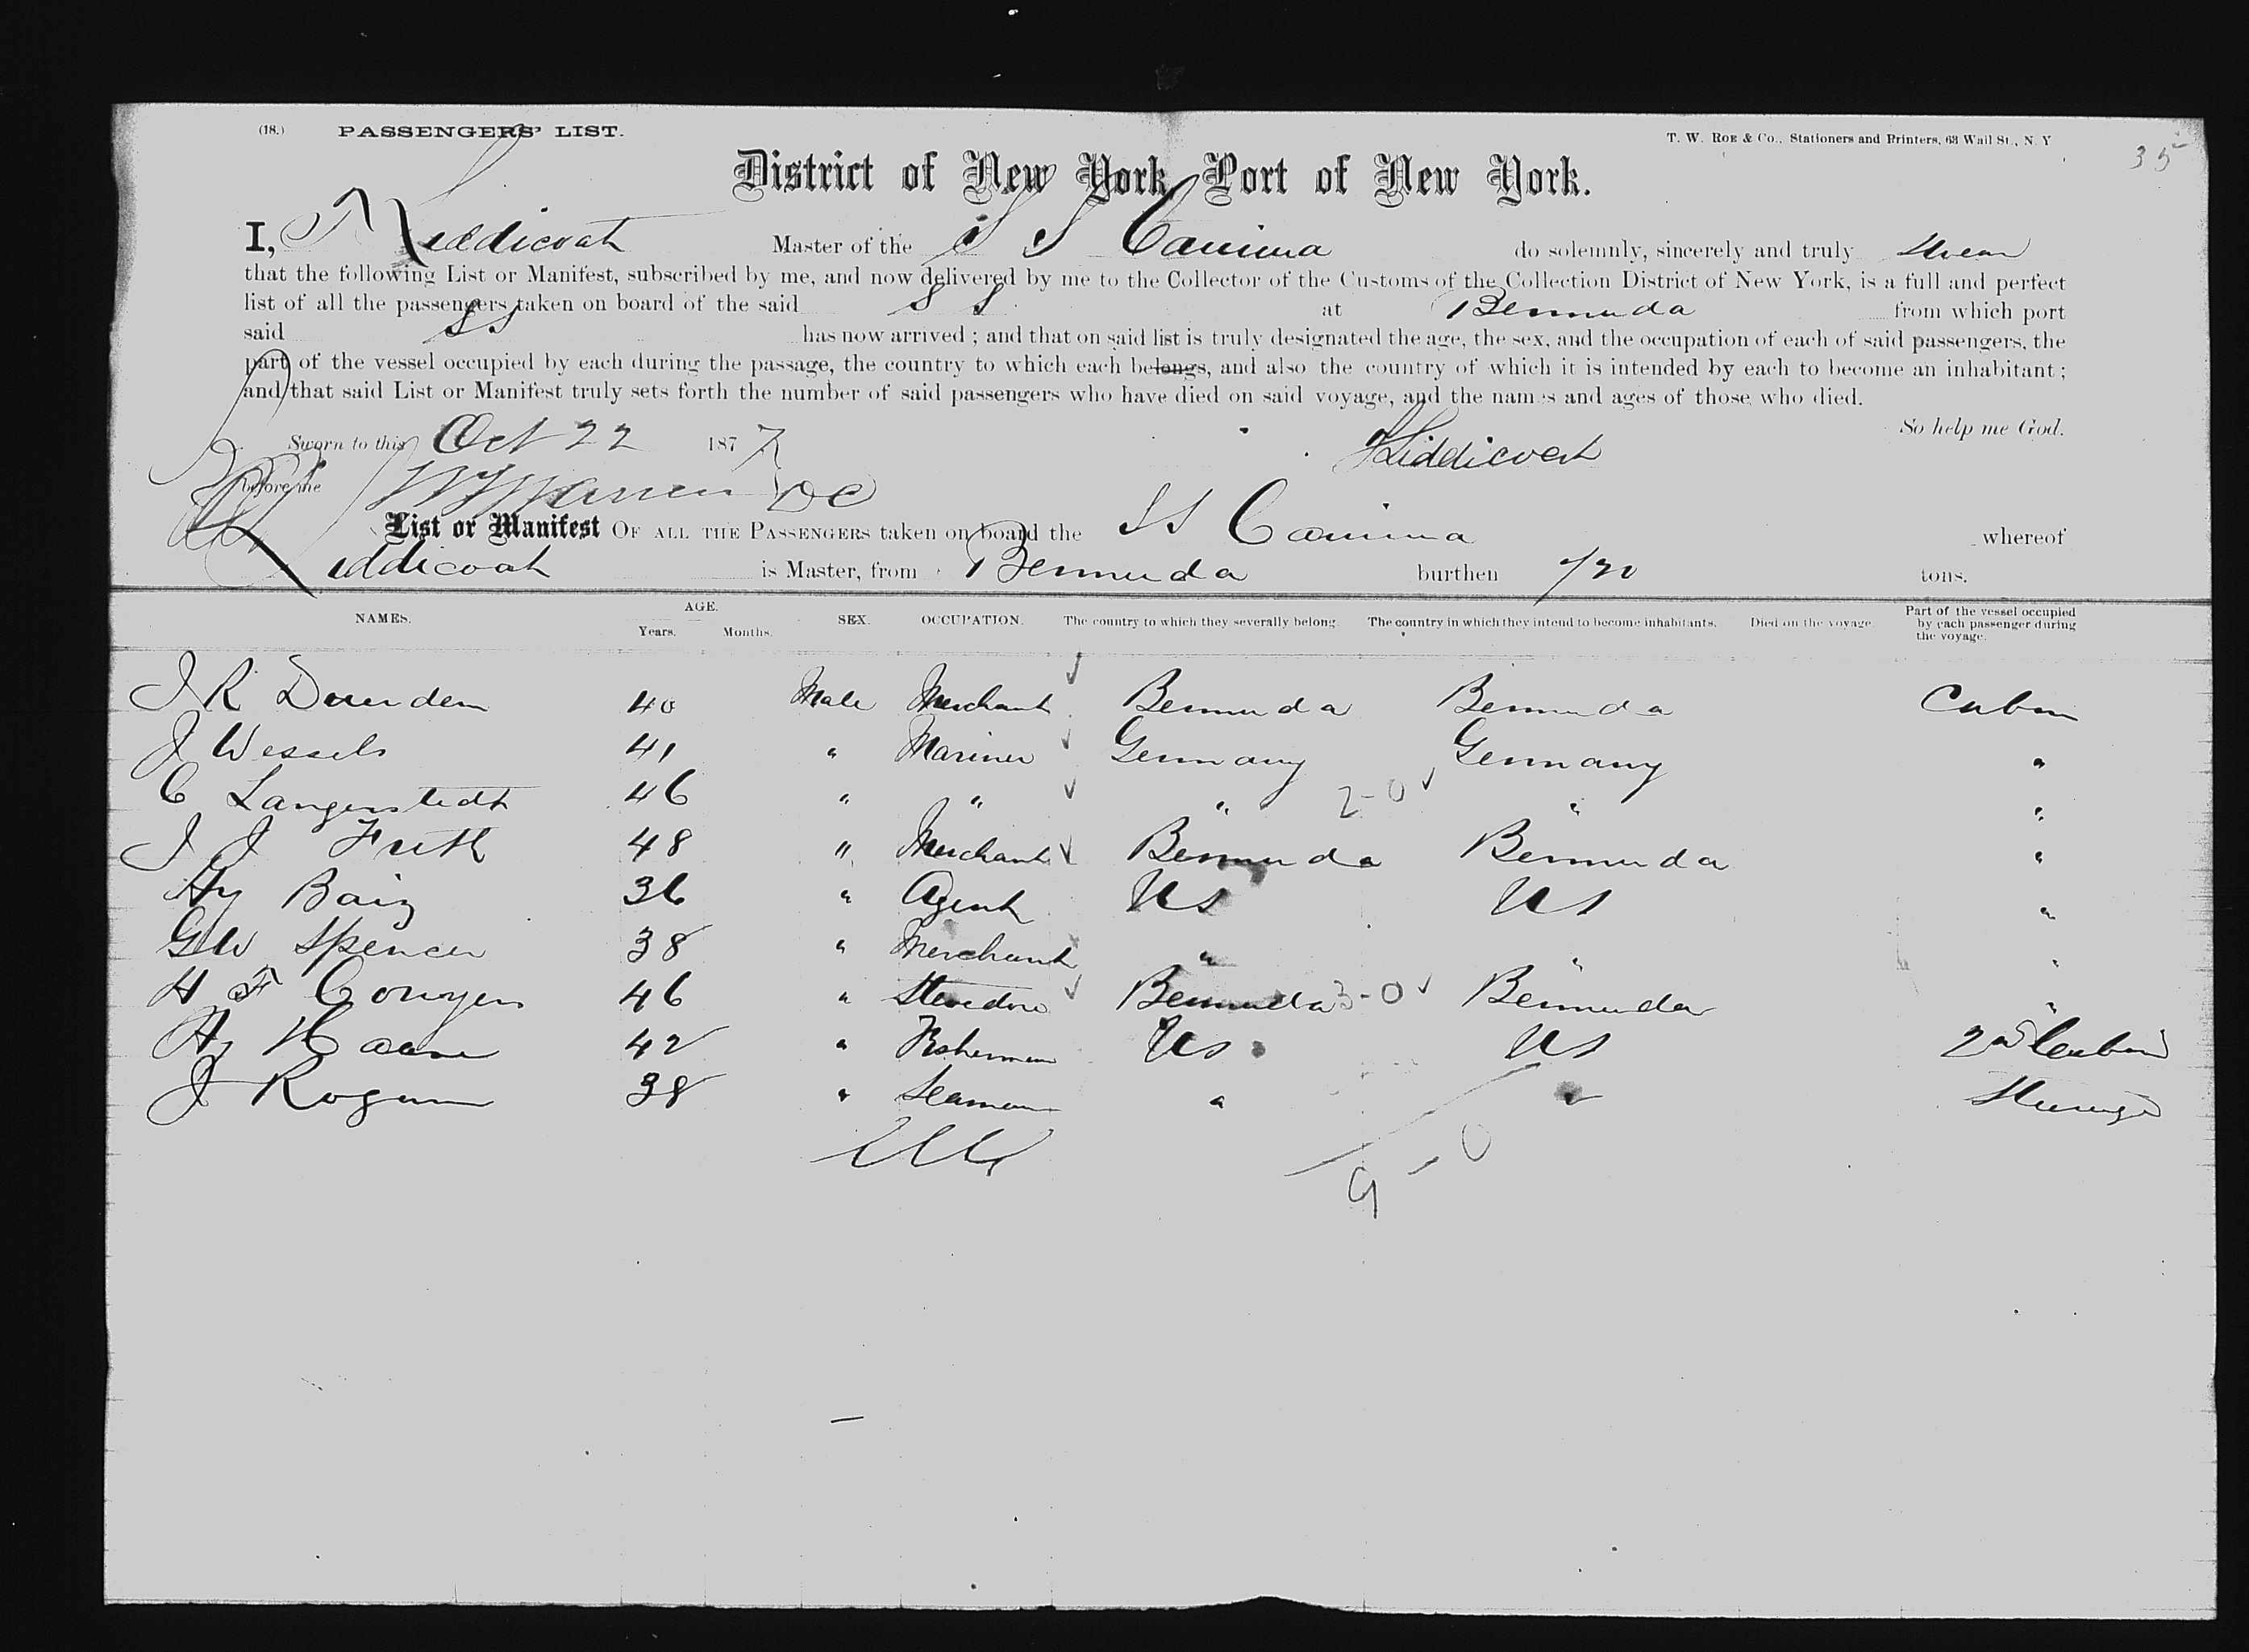 (18.) PASSENGERS' LIST. T. W. ROE & CO., Stationers and Printers, 63 Wall St., N. Y 35
District of New York, Port of New York.
I, Liddicoat Master of the S S Canima do solemnly, sincerely and truly swear
that the following List or Manifest, subscribed by me, and now delivered by me to the Collector of the Customs of the Collection District of New York, is a full and perfect
list of all the passengers taken on board of the said S S at Bermuda from which port
said SS has now arrived ; and that on said list is truly designated the age, the sex, and the occupation of each of said passengers, the
part of the vessel occupied by each during the passage, the country to which each belongs, and also the country of which it is intended by each to become an inhabitant ;
and that said List or Manifest truly sets forth the number of said passengers who have died on said voyage, and the names and ages of those who died.
So help me God.
Sworn to this Oct 22 1877 Liddicoat
before me DC
List or Manifest OF ALL THE PASSENGERS taken on board the SS Canima whereof
Liddicoat is Master, from Bermuda burthen tons.
NAMES. AGE. Years. Months. SEX. OCCUPATION. The country to which they severally belong. The country in which they intend to become inhabitants. Died on the voyage. Part of the vessel occupied by each passenger during the voyage.
J R 40 Male Merchant Bermuda Bermuda Cabin
J Wessels 41 " Mariner Germany Germany "
C Langerstedt 46 " " " 2-0 " "
J J Frith 48 " Merchant Bermuda Bermuda "
Hy Baiz 36 " Agent US US "
G W Spencer 38 " Merchant " " "
H F 46 " Stevedore Bermuda 3-0 Bermuda "
Hy 42 " Fisherman US US 2nd Cabin
J Rogan 38 " Seaman " " Steerage
9-0